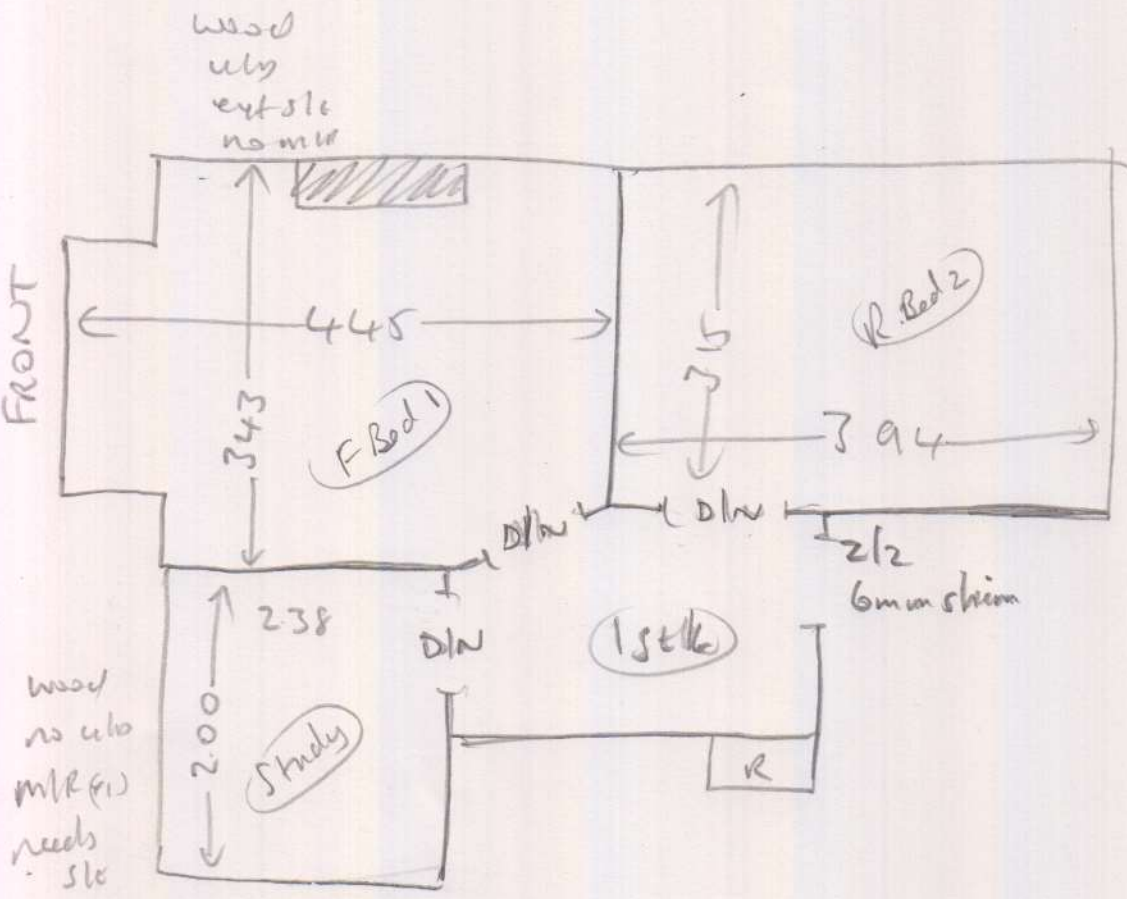 wood
u/lo
ext s/e
no m/r
FRONT
445
343
F Bed 1
315
R. Bed 2
3 94
D/w
D/w
2/2
6mm shim
2.38
D/w
2.00
Study
R
wood
no u/lo
M/R
needs
s/e